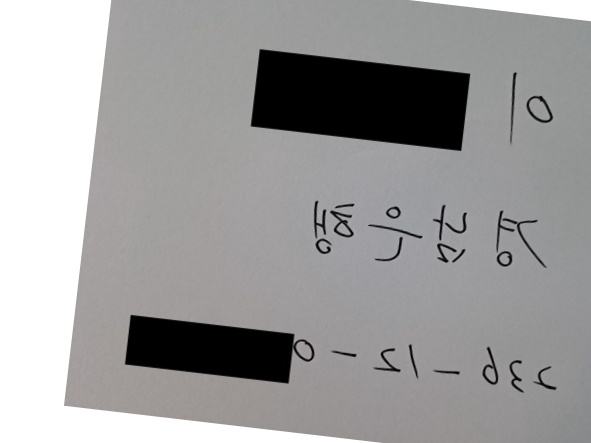 이
생감은행
236-12-0